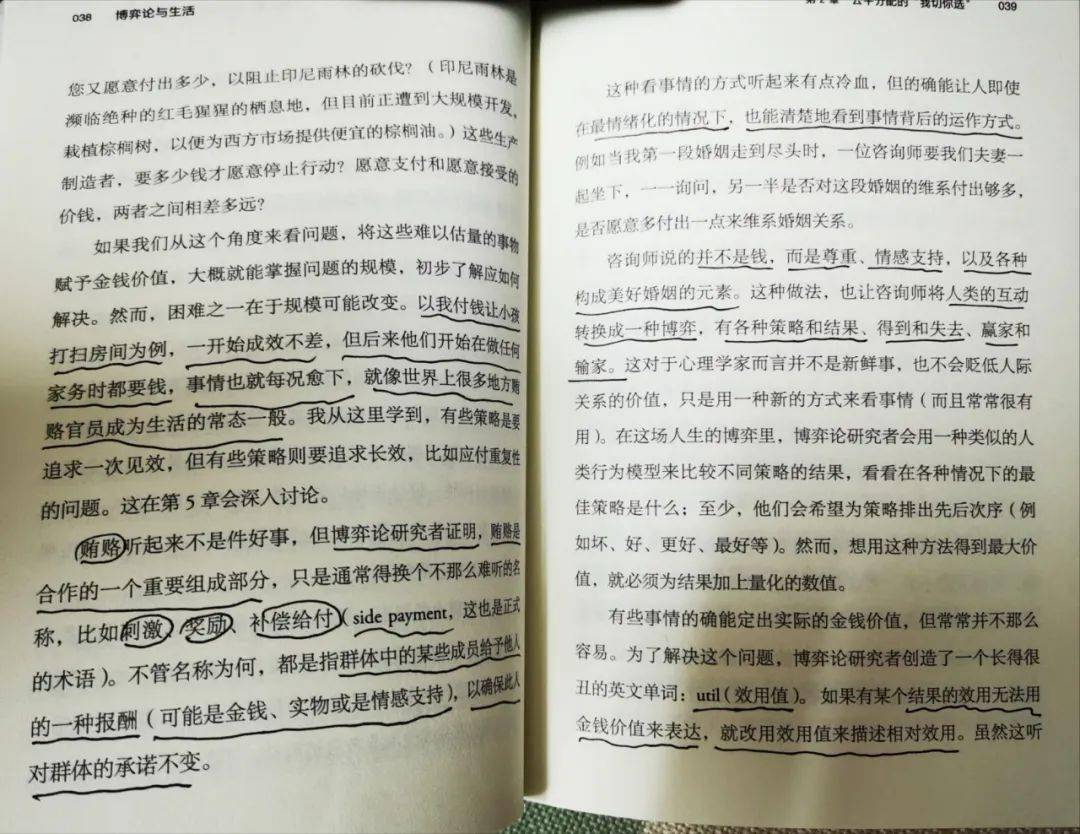 038 博弈论与生活
您又愿意付出多少，以阻止印尼雨林的砍伐？（印尼雨林是
濒临绝种的红毛猩猩的栖息地，但目前正遭到大规模开发，
栽植棕榈树，以便为西方市场提供便宜的棕榈油。）这些生产
制造者，要多少钱才愿意停止行动？愿意支付和愿意接受的
价钱，两者之间相差多远？
如果我们从这个角度来看问题，将这些难以估量的事物
赋予金钱价值，大概就能掌握问题的规模，初步了解应如何
解决。然而，困难之一在于规模可能改变。以我付钱让小孩
打扫房间为例，一开始成效不差，但后来他们开始在做任何
家务时都要钱，事情也就每况愈下，就像世界上很多地方贿
赂官员成为生活的常态一般。我从这里学到，有些策略是要
追求一次见效，但有些策略则要追求长效，比如应付重复性
的问题。这在第5章会深入讨论。
贿赂听起来不是件好事，但博弈论研究者证明，贿赂是
合作的一个重要组成部分，只是通常得换个不那么难听的名
称，比如刺激、奖励、补偿给付（side payment，这也是正式
的术语）。不管名称为何，都是指群体中的某些成员给予他人
的一种报酬（可能是金钱、实物或是情感支持），以确保此人
对群体的承诺不变。
第2章 公平分配的“我切你选” 039
这种看事情的方式听起来有点冷血，但的确能让人即使
在最情绪化的情况下，也能清楚地看到事情背后的运作方式。
例如当我第一段婚姻走到尽头时，一位咨询师要我们夫妻一
起坐下，一一询问，另一半是否对这段婚姻的维系付出够多，
是否愿意多付出一点来维系婚姻关系。
咨询师说的并不是钱，而是尊重、情感支持，以及各种
构成美好婚姻的元素。这种做法，也让咨询师将人类的互动
转换成一种博弈，有各种策略和结果、得到和失去、赢家和
输家。这对于心理学家而言并不是新鲜事，也不会贬低人际
关系的价值，只是用一种新的方式来看事情（而且常常很有
用）。在这场人生的博弈里，博弈论研究者会用一种类似的人
类行为模型来比较不同策略的结果，看看在各种情况下的最
佳策略是什么；至少，他们会希望为策略排出先后次序（例
如坏、好、更好、最好等）。然而，想用这种方法得到最大价
值，就必须为结果加上量化的数值。
有些事情的确能定出实际的金钱价值，但常常并不那么
容易。为了解决这个问题，博弈论研究者创造了一个长得很
丑的英文单词：util（效用值）。如果有某个结果的效用无法用
金钱价值来表达，就改用效用值来描述相对效用。虽然这听